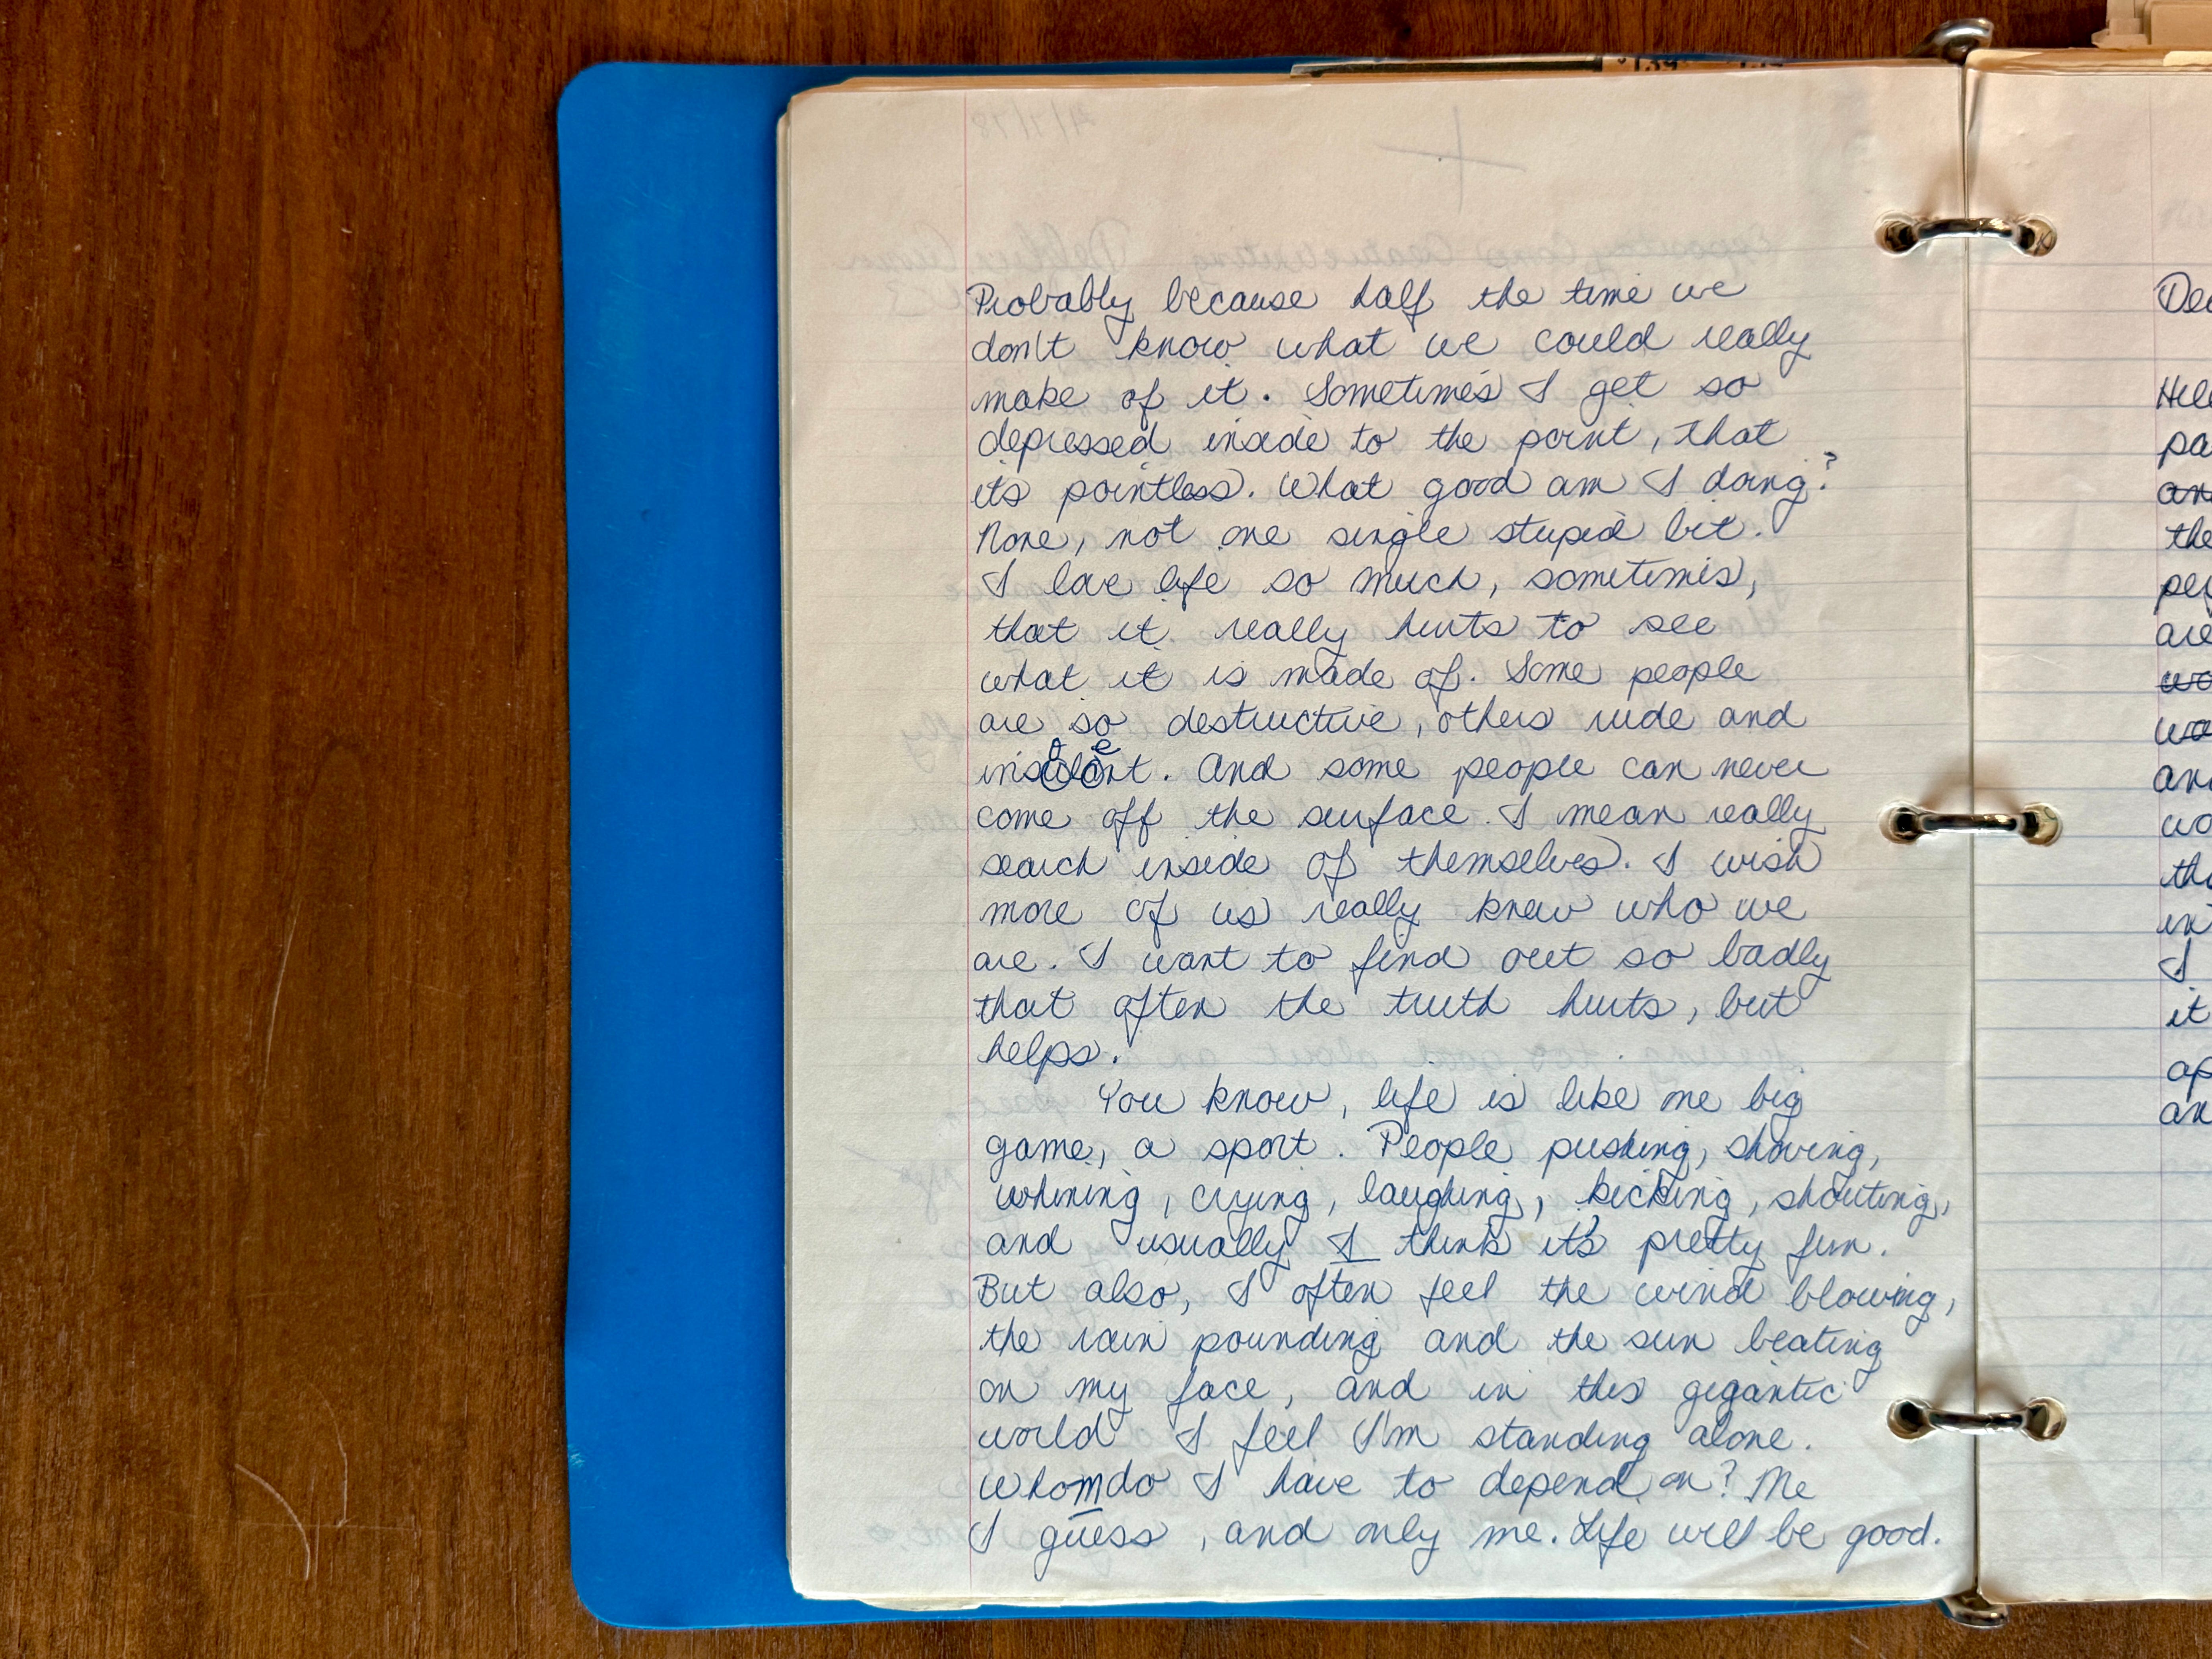 Probably because half the time we
don't know what we could really
make of it. Sometimes I get so
depressed inside to the point, that
its pointless. What good am I doing?
None, not one single stupid bit.
I love life so much, sometimes,
that it really hurts to see
what it is made of. Some people
are so destructive, others rude and
insolent. And some people can never
come off the surface. I mean really
search inside of themselves. I wish
more of us really knew who we
are. I want to find out so badly
that often the truth hurts, but
helps.
You know, life is like one big
game, a sport. People pushing, shoving,
whining, crying, laughing, kicking, shouting,
and usually I think it's pretty fun.
But also, I often feel the wind blowing,
the rain pounding and the sun beating
on my face, and in this gigantic
world I feel I'm standing alone.
Whom do I have to depend on? Me
I guess, and only me. Life will be good.